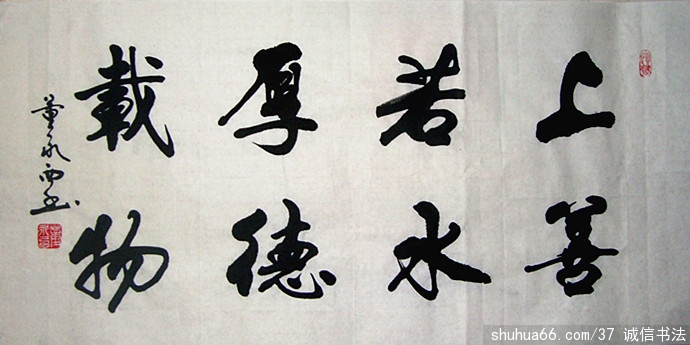 上善
若水
厚德
載物
董永西书
shuhua66.com/37 诚信书法